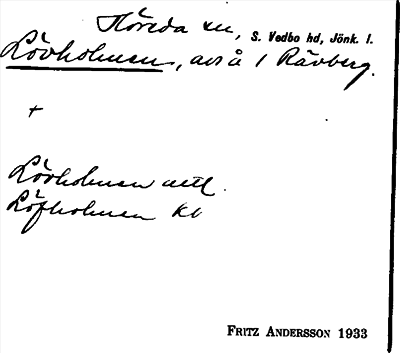 Höreda sn, S. Vedbo hd, Jönk. l.
Lövholmen, avs å 1 Rävberg.
+
Lövholmen
Löfholmen
FRITZ ANDERSSON 1933